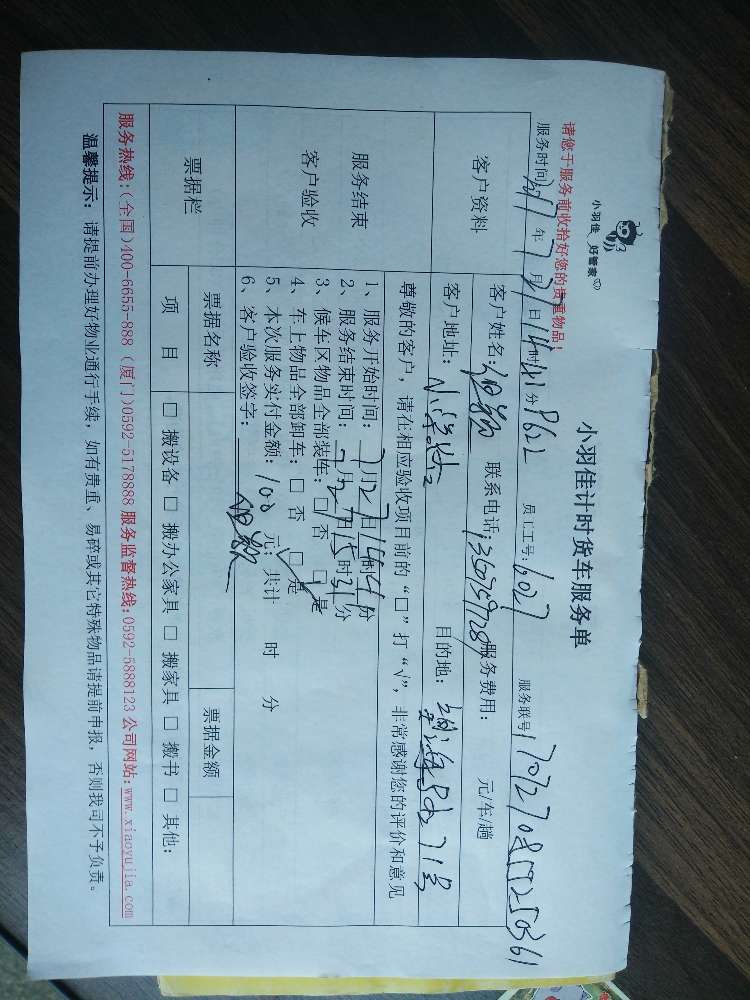 小羽佳 好管家
小羽佳计时货车服务单
请您于服务前收拾好您的贵重物品！
服务时间 年7月27日14时41分 员工工号：6027 服务联号
客户资料
客户姓名： 联系电话： 服务费用： 元/车/趟
客户地址： 目的地：
服务结束
客户验收
尊敬的客户，请在相应验收项目前的“□”打“√”，非常感谢您的评价和意见
1、服务开始时间：7月27日14时41分
2、服务结束时间：7月27日15时31分
3、候车区物品全部装车：□ 否 □ 是
4、车上物品全部卸车：□ 否 □ 是
5、本次服务实付金额：100 元；共计 时 分
6、客户验收签字：
票据栏
票据名称 票据金额
项 目 □ 搬设备 □ 搬办公家具 □ 搬家具 □ 搬书 □ 其他：
服务热线：(全国)400-6655-888 (厦门)0592-5178888 服务监督热线：0592-5888123 公司网站：www.xiaoyujia.com
温馨提示： 请提前办理好物业通行手续，如有贵重、易碎或其它特殊物品请提前申报，否则我司不予负责。